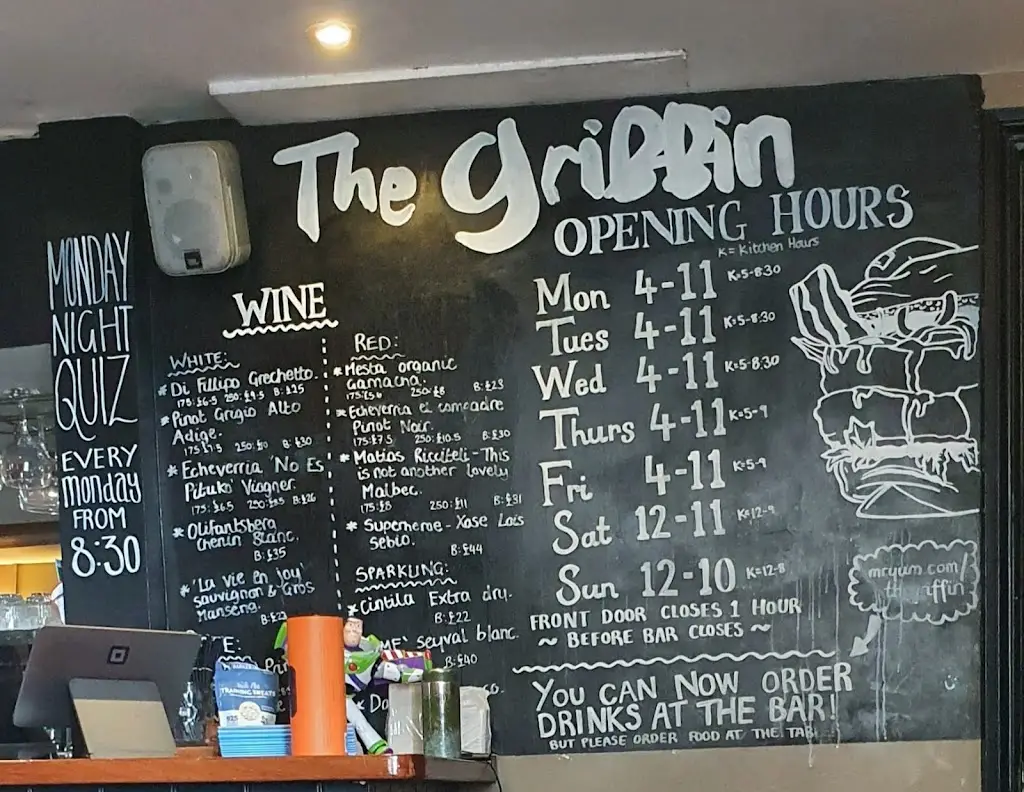 The Griffin
OPENING HOURS
K = Kitchen Hours
Mon 4-11 K=5-8:30
Tues 4-11 K=5-8:30
Wed 4-11 K=5-8:30
Thurs 4-11 K=5-9
Fri 4-11 K=5-9
Sat 12-11 K=12-9
Sun 12-10 K=12-8
FRONT DOOR CLOSES 1 HOUR
~ BEFORE BAR CLOSES ~
YOU CAN NOW ORDER
DRINKS AT THE BAR!
BUT PLEASE ORDER FOOD AT THE
mryum.com
MONDAY
NIGHT
QUIZ
EVERY
monday
FROM
8:30
WINE
WHITE:
* Di Fillipo Grechetto.
175: £6.5 250: £9.5 B: £25
* Pinot Grigio Alto
Adige.
B: £30
* Echeverria 'No Es
Pituko' Viogner.
175: £6.5 B: £26
* Olifantsberg
Chenin Blanc.
B: £35
* 'La vie en Joy'
Sauvignon & Gros
Manseng.
RED:
* Mesta organic
Garnacha.
250: £8 B: £23
* Echeverria el compadre
Pinot Noir.
175: £7.5 250: £10.5 B: £30
* Matias Riccitelli - This
is not another lovely
Malbec.
175: £8 250: £11 B: £31
* Superheroe - Xose Lois
Sebio.
B: £44
SPARKLING:
* Cintila Extra dry.
B: £22
seyval blanc.
£40
TRAINING TREATS